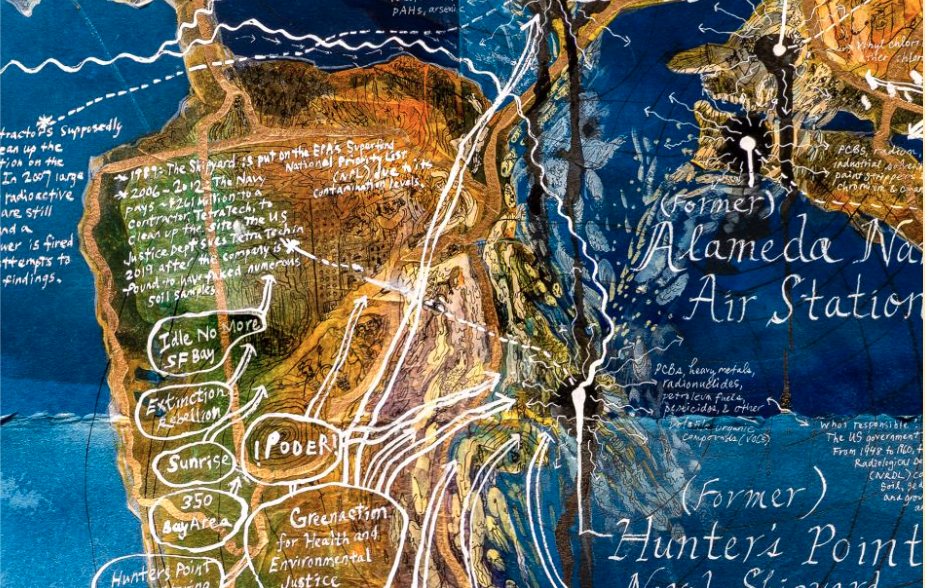 PAHs, arsenic
tractors Supposedly
ean up the
tion on the
In 2007 large
radioactive
are still
nd a
wer is fired
ttempts to
findings.
1989: The Shipyard is put on the EPA's Superfund
National Priority List
(NPL) due to its
Contamination levels.
2006-2012: The Navy
pays ~$261 million to a
contractor, Tetra Tech, to
clean up the site. The US
Justice Dept sues Tetra Tech in
2019 after the company is
found to have faked numerous
soil samples.
Idle No More
SF Bay
Extinction
Rebellion
Sunrise
350
Bay Area
Hunters Point
¡PODER!
Greenaction
for Health and
Environmental
Justice
Vinyl chlor
PCBs, radio
industrial
paint strippers
chromium &
(Former)
Alameda Na
Air Station
PCBs, heavy metals,
radionuclides,
petroleum fuels,
pesticides, & other
volatile organic
compounds (VOCs)
Who's responsible:
The US government
From 1948 to 1960, t
Radiological De
(NRDL) co
soil, se
and grou
(Former)
Hunter's Point
Naval Shipyard